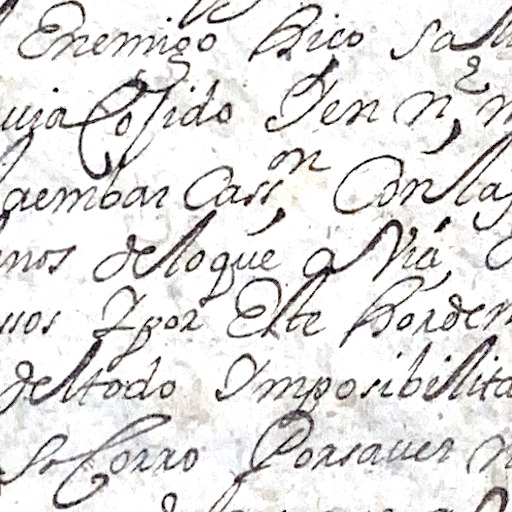 Enemigo Rico sa
uia Cosido Y en n.
la embarcassn Con las
nos de lo que avia
sos Y por Este Borden
del todo Imposibilita
So Corro Por saver n